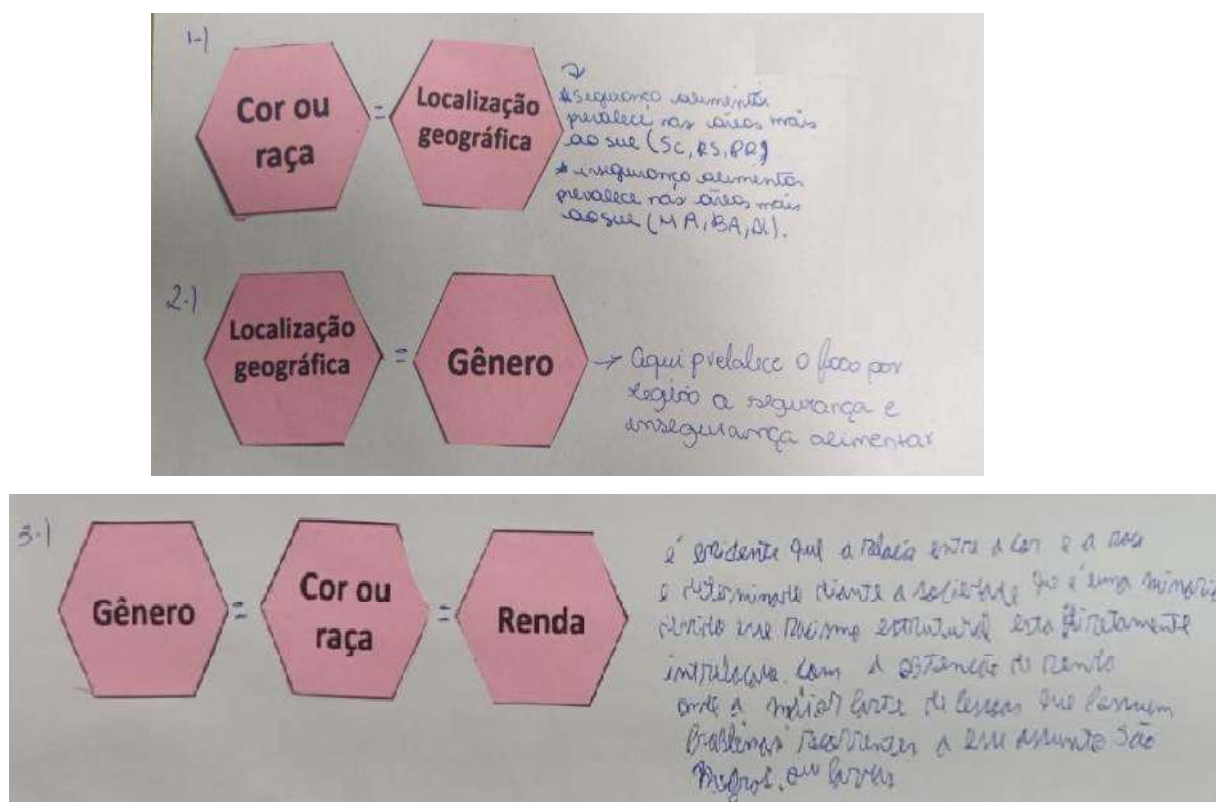 1-)
Cor ou
raça
=
Localização
geográfica
* segurança alimentar
prevalece nas áreas mais
ao sul (SC, RS, PR)
* insegurança alimentar
prevalece nas áreas mais
ao sul (MA, BA, AL).
2-)
Localização
geográfica
=
Gênero
→ Aqui prevalece o foco por
região a segurança e
insegurança alimentar
3-)
Gênero
=
Cor ou
raça
=
Renda
é evidente que a relação entre a cor e a
é determinante diante a sociedade que é uma minoria
esse racismo estrutural esta diretamente
com a obtenção de renda
onde a maior parte de pessoas que possuem
problemas recorrentes a esse assunto são
negros, ou